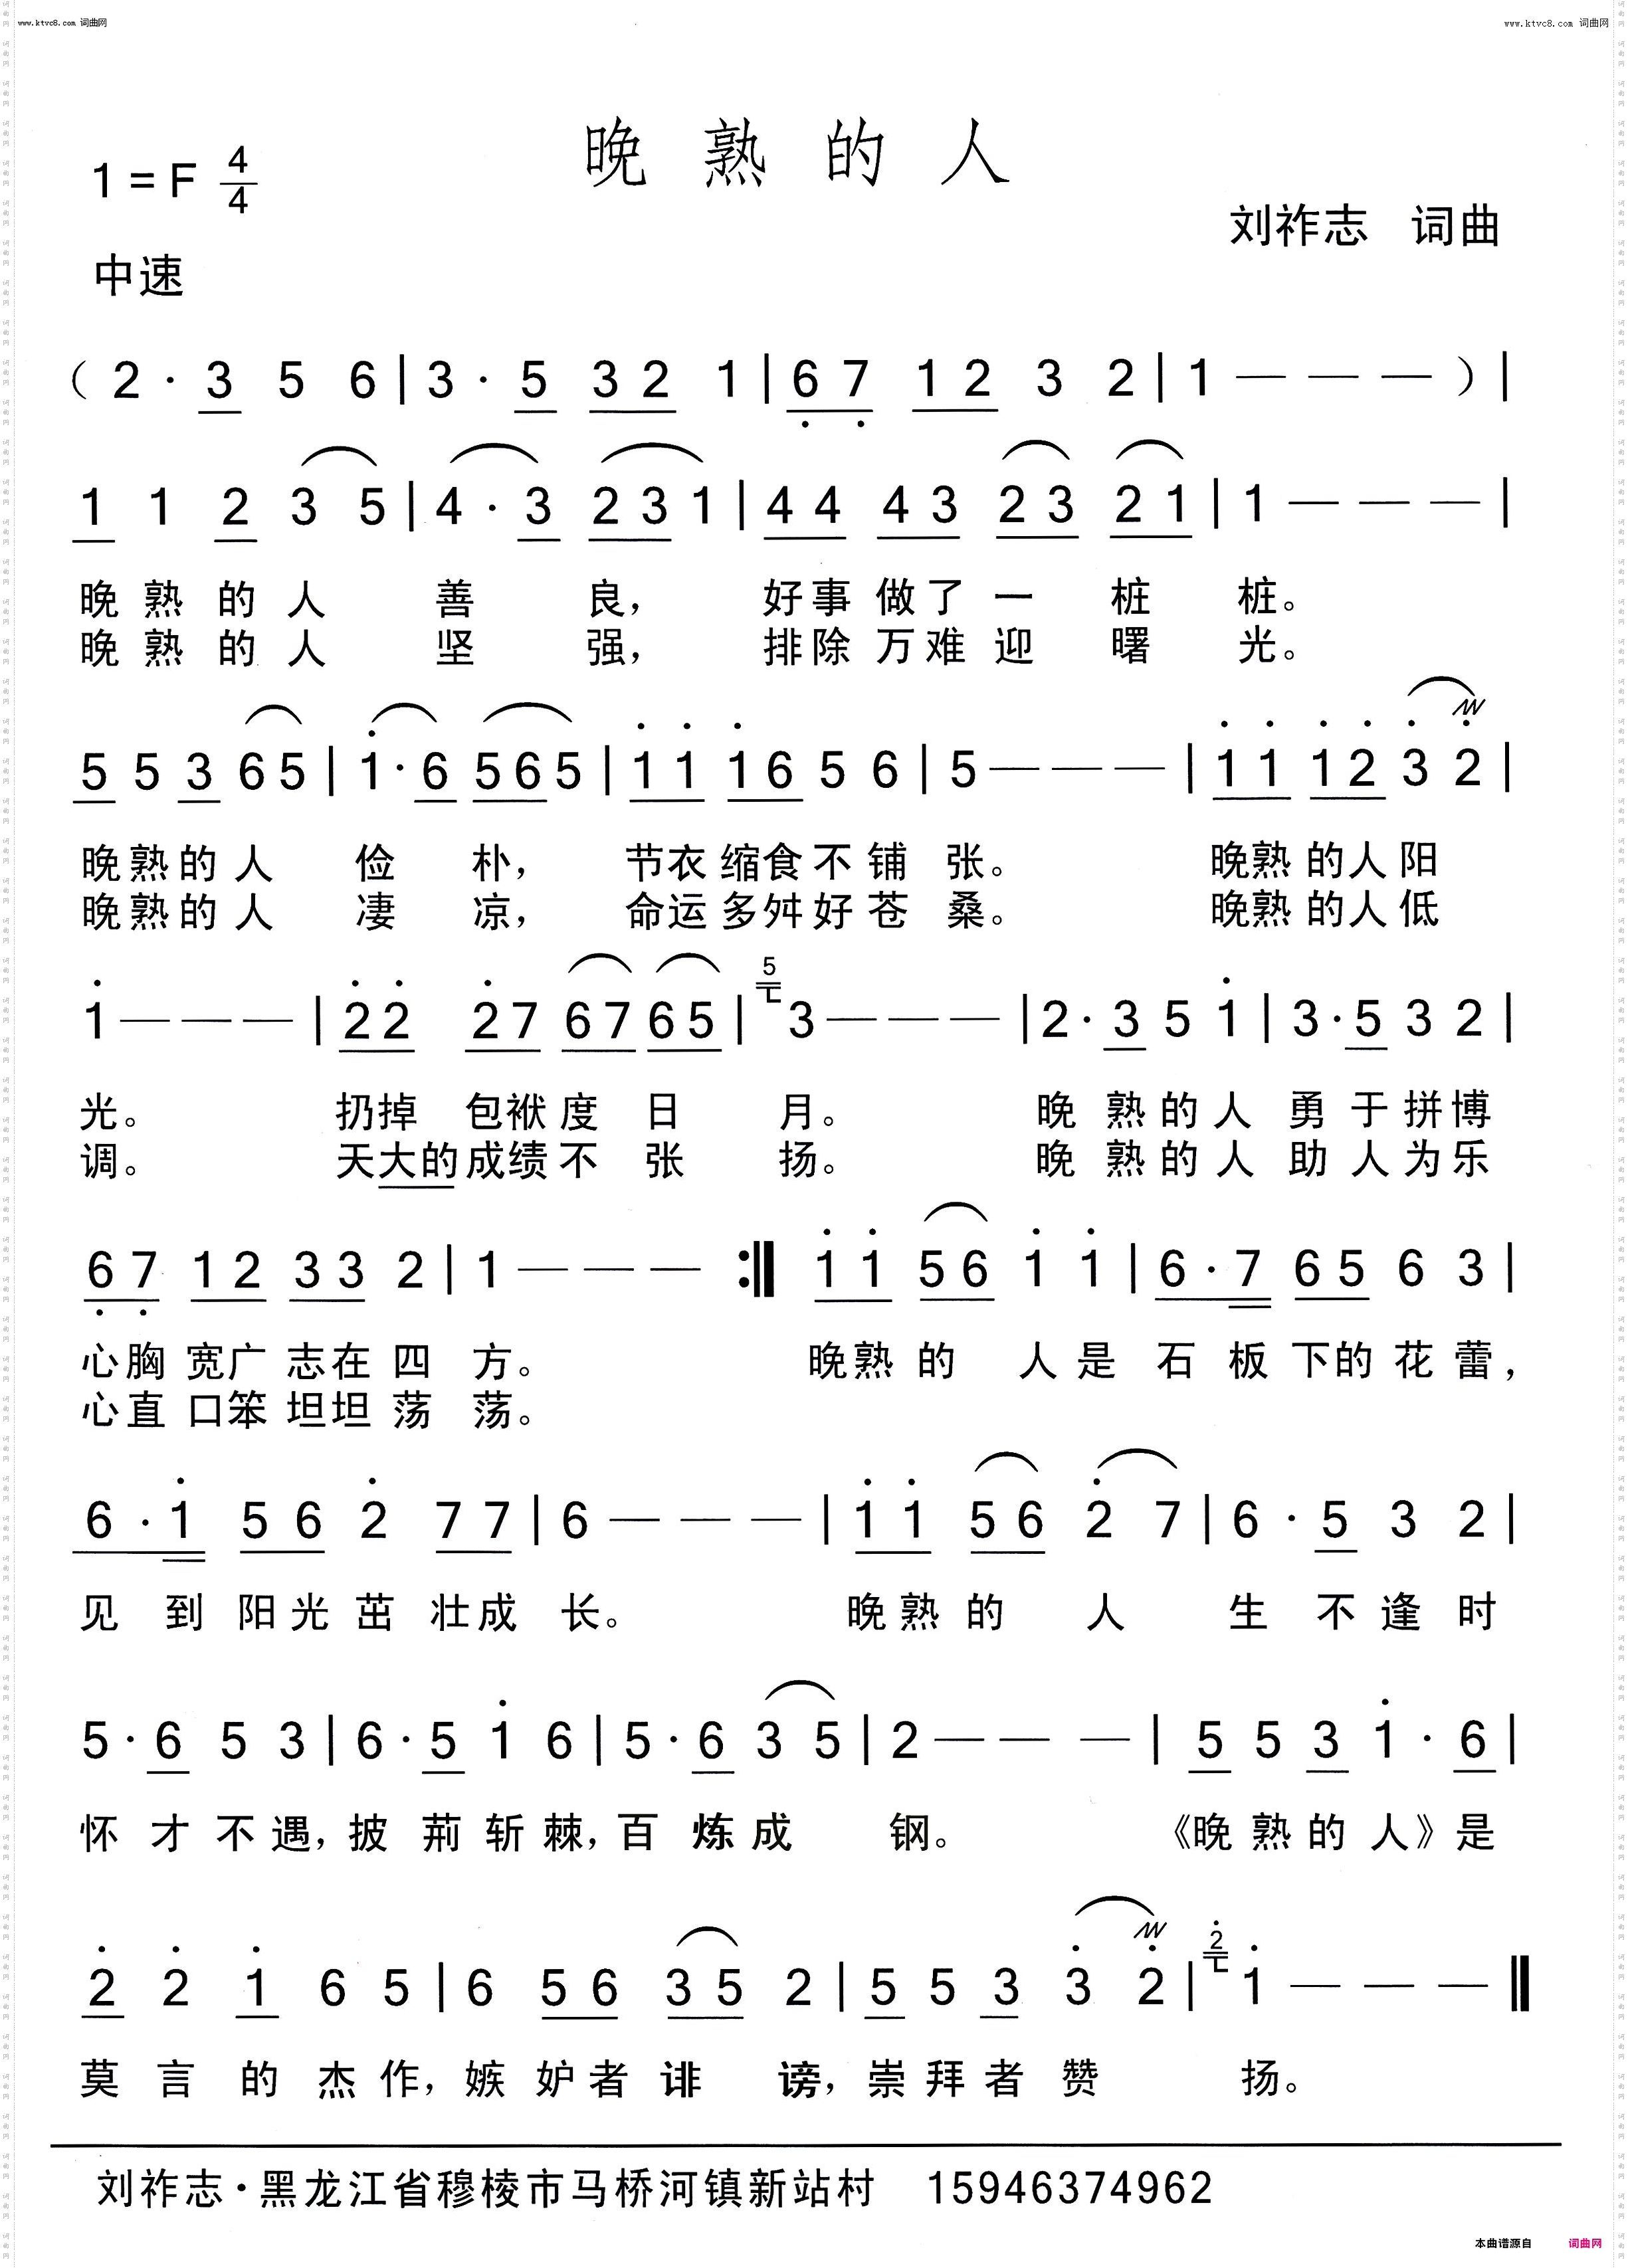 www.ktvc8.com 词曲网 www.ktvc8.com 词曲网
晚熟的人
1=F 4/4
刘祚志 词曲
中速
(2·3 5 6|3·5 32 1|67 12 3 2|1———)|
1 1 2 3 5|4·3 231|44 43 23 21|1———|
晚熟的人善良，好事做了一桩桩。
晚熟的人坚强，排除万难迎曙光。
5 5 3 65|1·6 565|11 16 5 6|5———|11 12 3 2|
晚熟的人俭朴，节衣缩食不铺张。晚熟的人阳
晚熟的人凄凉，命运多舛好苍桑。晚熟的人低
5
1———|22 27 67 65|3———|2·3 5 1|3·5 3 2|
光。扔掉包袱度日月。晚熟的人勇于拼博
调。天大的成绩不张扬。晚熟的人助人为乐
67 12 33 2|1———:‖11 56 1 1|6·7 65 6 3|
心胸宽广志在四方。晚熟的人是石板下的花蕾，
心直口笨坦坦荡荡。
6·1 56 2 77|6———|11 56 2 7|6·5 3 2|
见到阳光茁壮成长。晚熟的人生不逢时
5·6 5 3|6·5 1 6|5·6 3 5|2———|5 5 3 1·6|
怀才不遇，披荆斩棘，百炼成钢。《晚熟的人》是
2
2 2 1 6 5|6 56 35 2|5 5 3 3 2|1———‖
莫言的杰作，嫉妒者诽谤，崇拜者赞扬。
刘祚志·黑龙江省穆棱市马桥河镇新站村 15946374962
本曲谱源自 词曲网